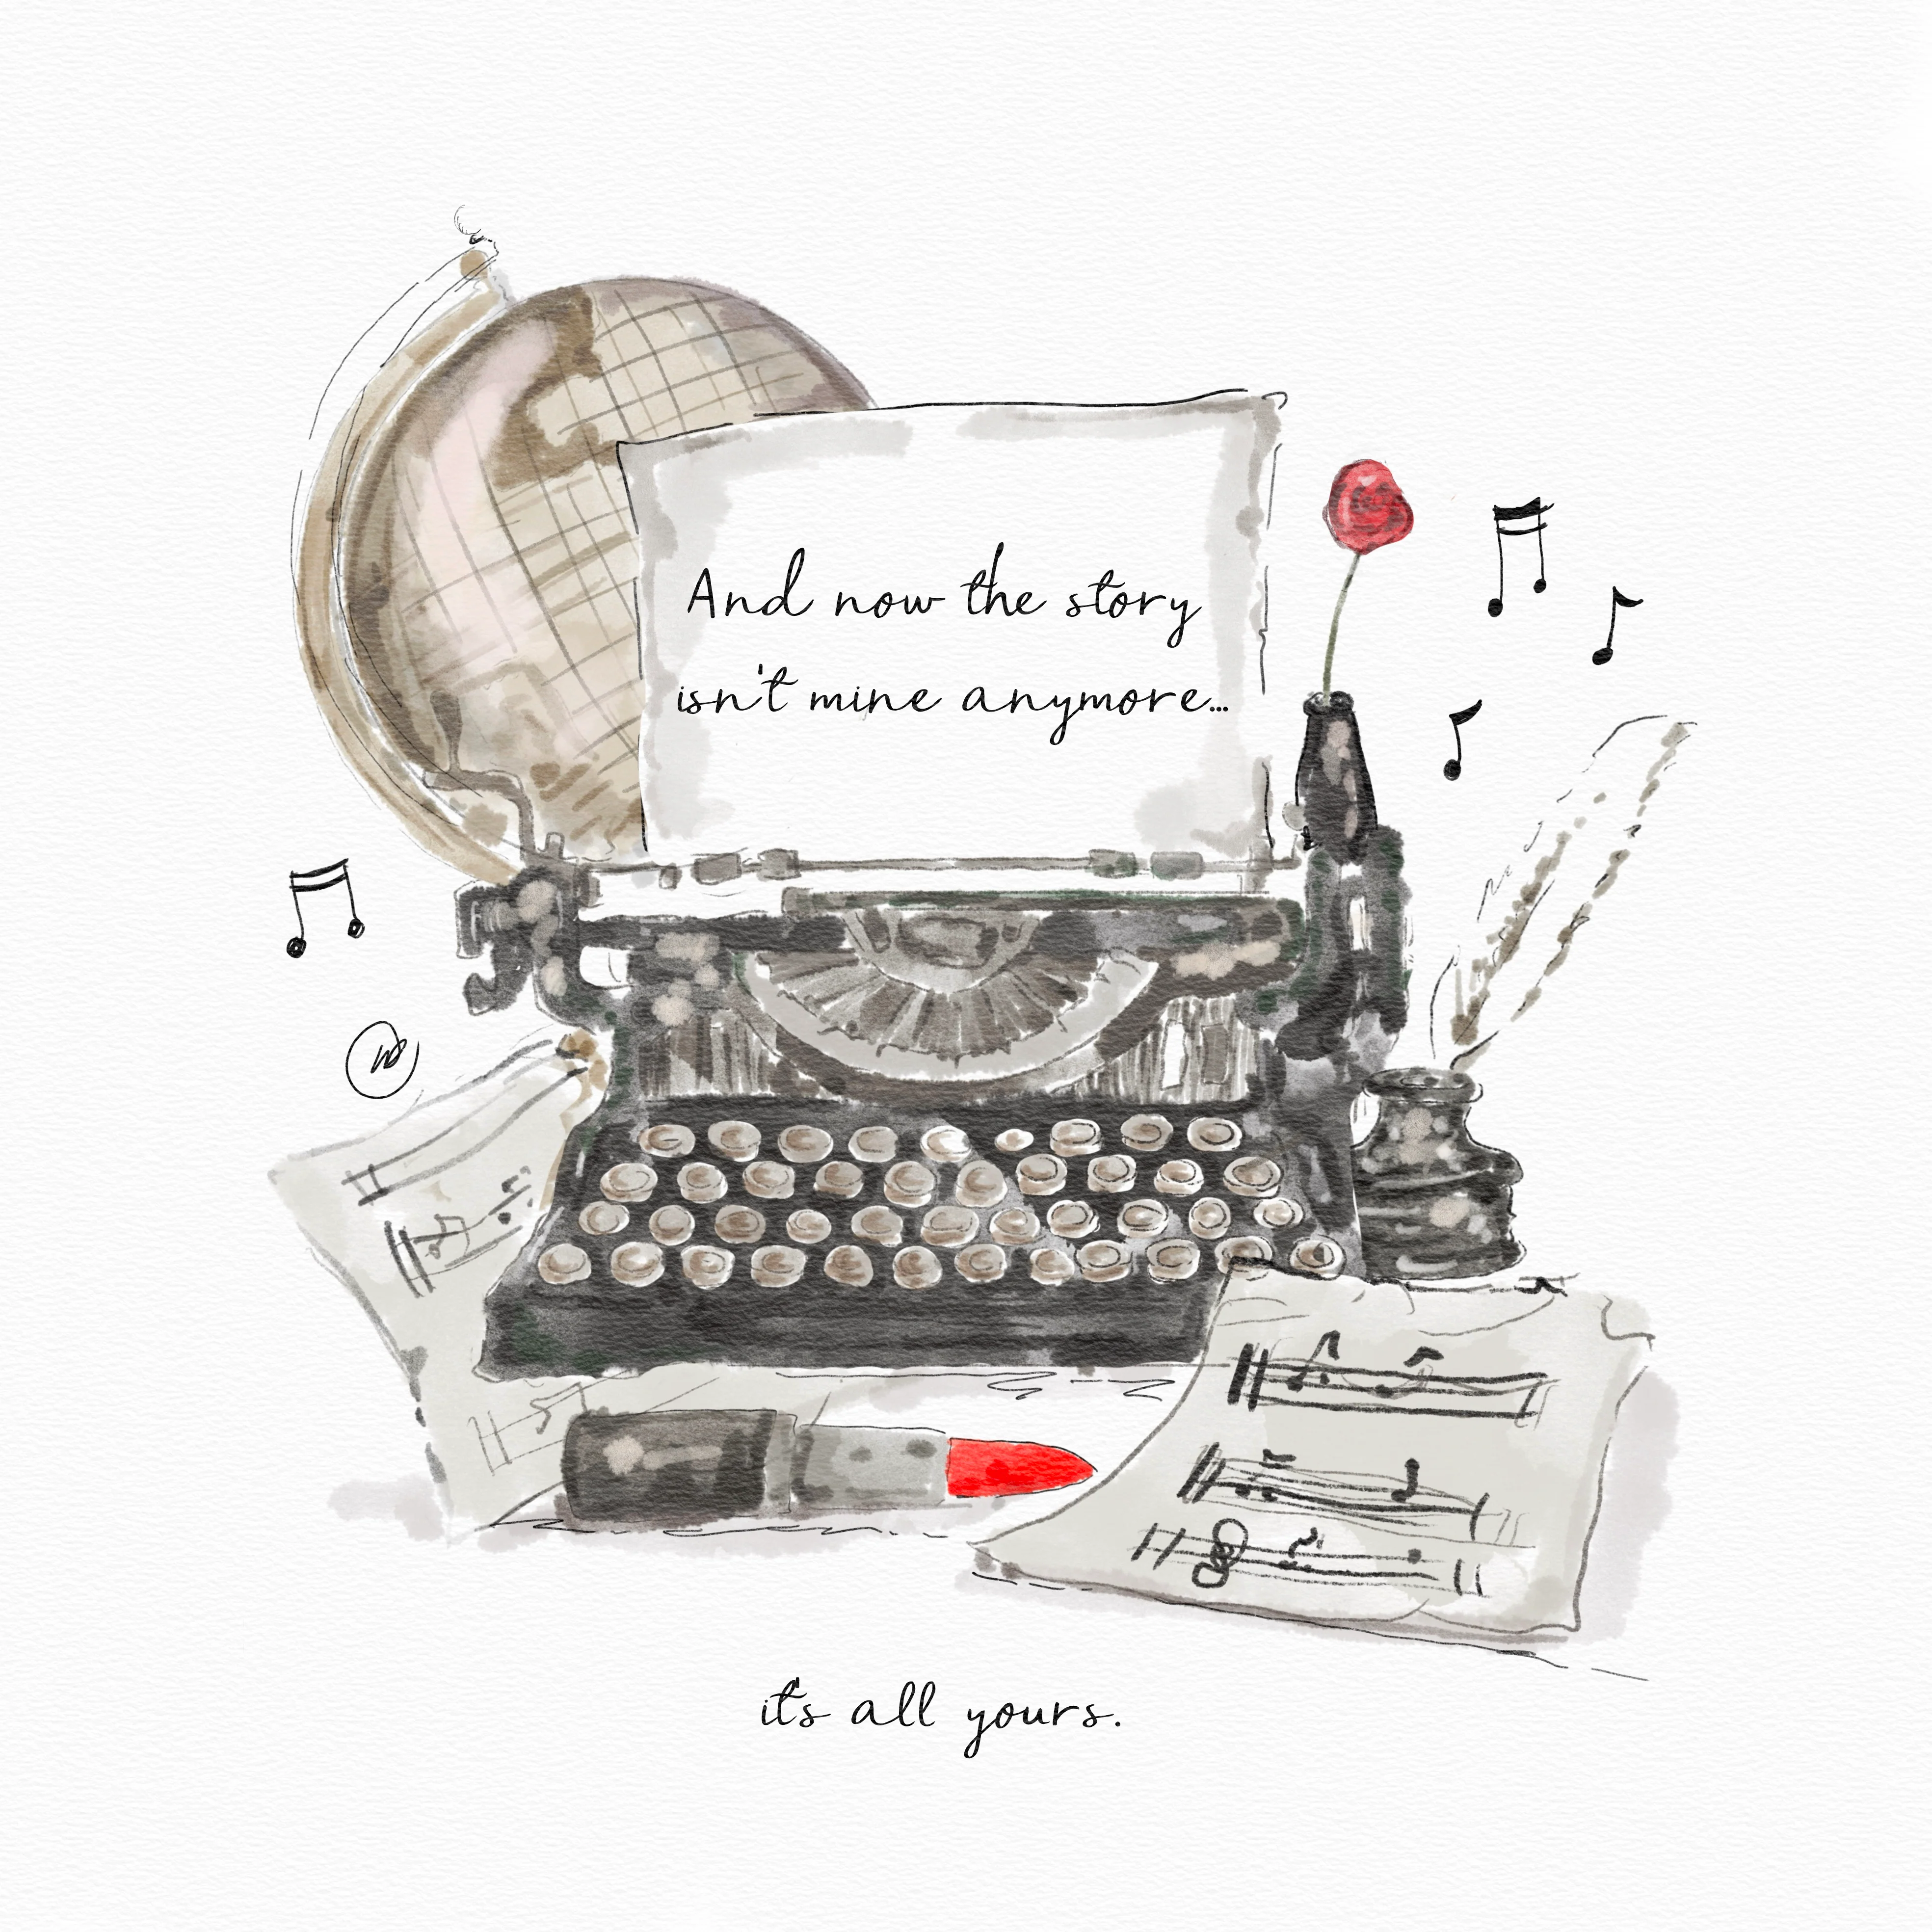 And now the story
isn't mine anymore...
it's all yours.